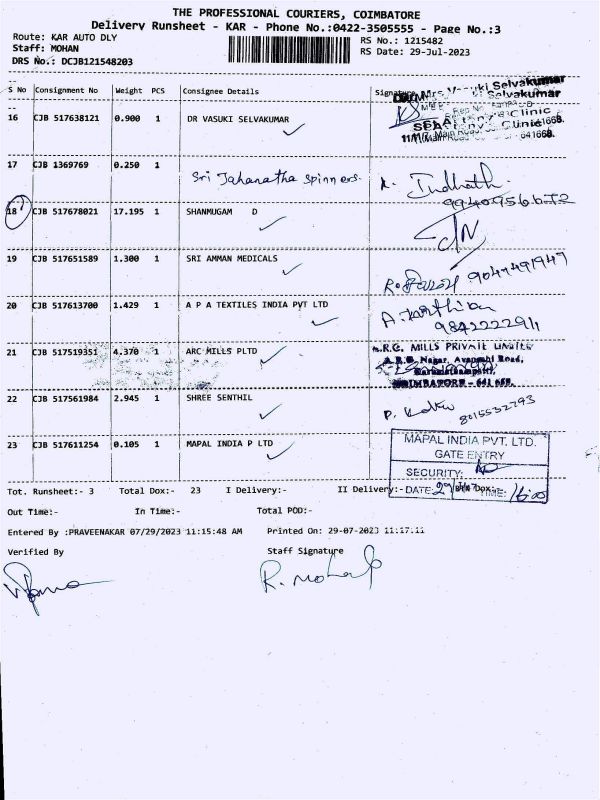 THE PROFESSIONAL COURIERS, COIMBATORE
Delivery Runsheet - KAR - Phone No.:0422-3505555 - Page No.:3
Route: KAR AUTO DLY
RS No.: 1215482
Staff: MOHAN
RS Date: 29-Jul-2023
DRS No.: DCJB121548203
S No Consignment No Weight PCS Consignee Details Signature
Selvakumar
Selvakumar
16 CJB 517638121 0.900 1 DR VASUKI SELVAKUMAR
Clinic
Clinic
17 CJB 1369769 0.250 1 Sri Jahanatha Spinners.
9940956672
18 CJB 517678021 17.195 1 SHANMUGAM D
19 CJB 517651589 1.300 1 SRI AMMAN MEDICALS
20 CJB 517613700 1.429 1 A P A TEXTILES INDIA PVT LTD
9842222911
21 CJB 517519351 4.370 1 ARC MILLS PLTD
MILLS PRIVATE LIMITED
COIMBATORE - 641 659.
22 CJB 517561984 2.945 1 SHREE SENTHIL
23 CJB 517611254 0.105 1 MAPAL INDIA P LTD
MAPAL INDIA PVT. LTD.
GATE ENTRY
SECURITY:
DATE: 29 TIME: 16:00
Tot. Runsheet:- 3 Total Dox:- 23 I Delivery:- II Delivery:-
Out Time:- In Time:- Total POD:-
Entered By :PRAVEENAKAR 07/29/2023 11:15:48 AM Printed On: 29-07-2023 11:17:11
Verified By Staff Signature
R. Mohan